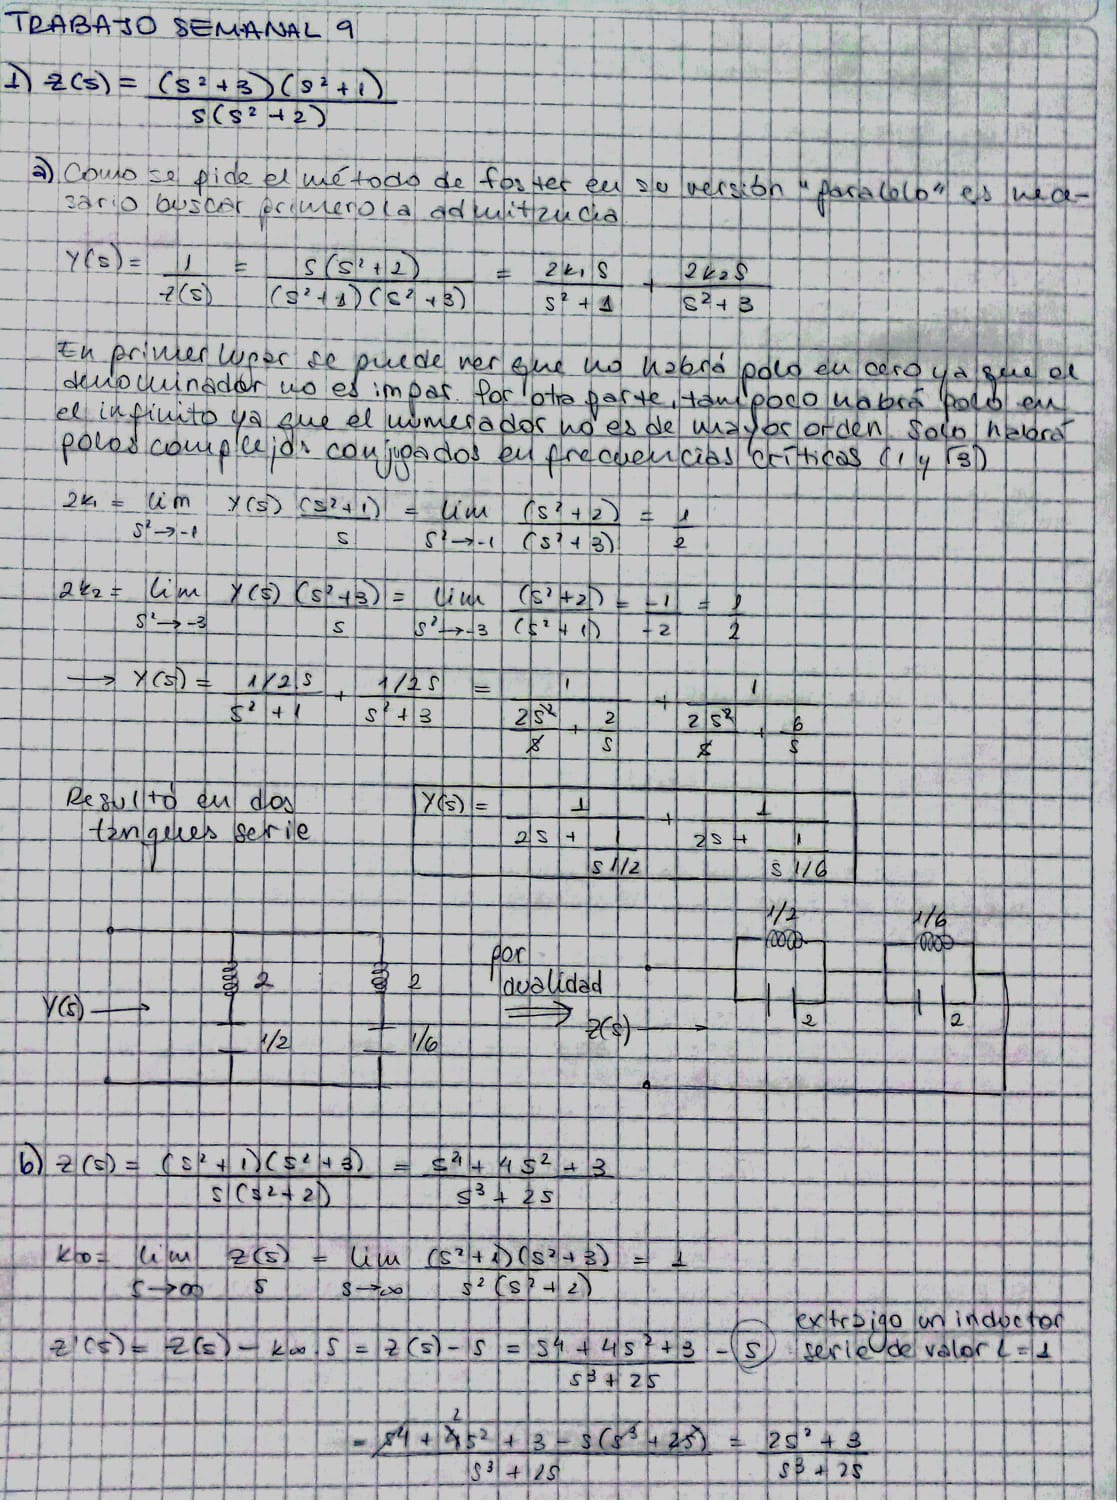 TRABAJO SEMANAL 9
1) Z(s) = (s²+3)(s²+1) / s(s²+2)
a) Como se pide el método de foster en su versión "paralelo" es nece-
sario buscar primero la admitancia
Y(s) = 1/Z(s) = s(s²+2) / (s²+1)(s²+3) = 2k₁s / s²+1 + 2k₂s / s²+3
En primer lugar se puede ver que no habrá polo en cero ya que el
denominador no es impar. Por otra parte, tampoco habrá polo en
el infinito ya que el numerador no es de mayor orden. Solo habrá
polos complejos conjugados en frecuencias críticas (1 y √3)
2k₁ = lim s²→-1 Y(s) (s²+1)/s = lim s²→-1 (s²+2)/(s²+3) = 1/2
2k₂ = lim s²→-3 Y(s) (s²+3)/s = lim s²→-3 (s²+2)/(s²+1) = -1/-2 = 1/2
→ Y(s) = 1/2 s / s²+1 + 1/2 s / s²+3 = 1 / (2s²/s + 2/s) + 1 / (2s²/s + 6/s)
Resultó en dos
tanques serie
Y(s) = 1 / (2s + 1/(s 1/2)) + 1 / (2s + 1/(s 1/6))
1/2 1/6
por
dualidad
⇒
Y(s) → 2 2
1/2 1/6
Z(s) → 2 2
b) Z(s) = (s²+1)(s²+3) / s(s²+2) = s⁴+4s²+3 / s³+2s
k∞ = lim s→∞ Z(s)/s = lim s→∞ (s²+1)(s²+3) / s²(s²+2) = 1
extraigo un inductor
Z'(s) = Z(s) - k∞.s = Z(s) - s = s⁴+4s²+3 / s³+2s - s serie de valor L=1
= s⁴ + 4s² + 3 - s(s³+2s) / s³+2s = 2s²+3 / s³+2s